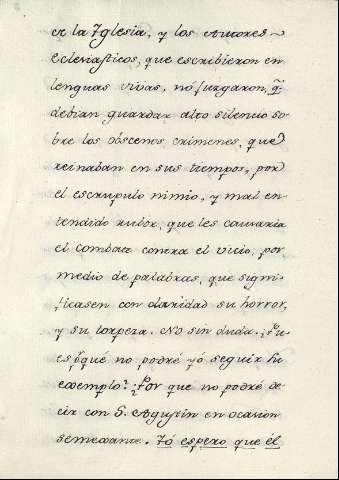 er la Iglesia, y los Autores
Eclesiasticos, que escribieron en
lenguas vivas, nó juzgaron, q.e
debian guardar alto silencio so-
bre los obscenos crimenes, que
reinaban en sus tiempos, por
el escrupulo nimio, y mal en-
tendido rubor, que les causaria
el combate contra el vicio, por
medio de palabras, que signi-
ficasen con claridad su horror,
y su torpeza. No sin duda. ¿Pu-
es pr.qué no podré yó seguir su
exemplo? ¿Por que no podré de-
cir con S. Agustin en ocasion
semexante. Yó espero que él